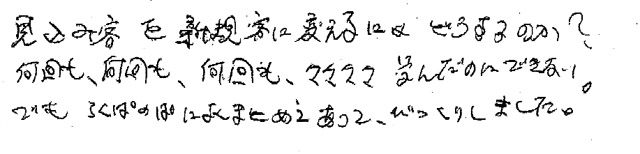 見込み客を新規客に変えるにはどうするのか?
何回も、何回も、何回も、ママママ 学んだのにできない。
でも ろくぽのぽによくまとめてあって、びっくりしました。